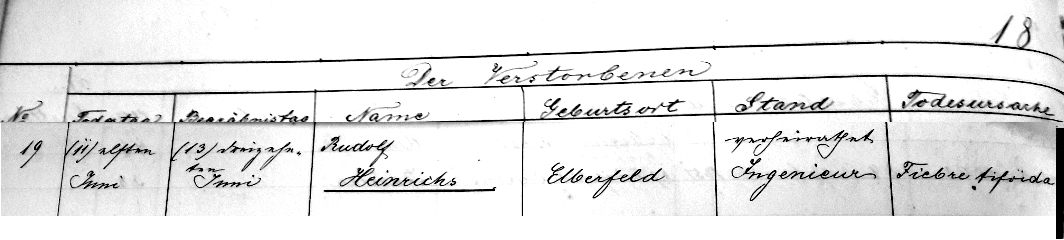 18
Der Verstorbenen
No Todestag Begräbnistag Name Geburtsort Stand Todesursache
19 (11) elften (13) dreizehn- Rudolf verheirathet
Juni ten Juni Heinrichs Elberfeld Ingenieur Fiebre tifoida